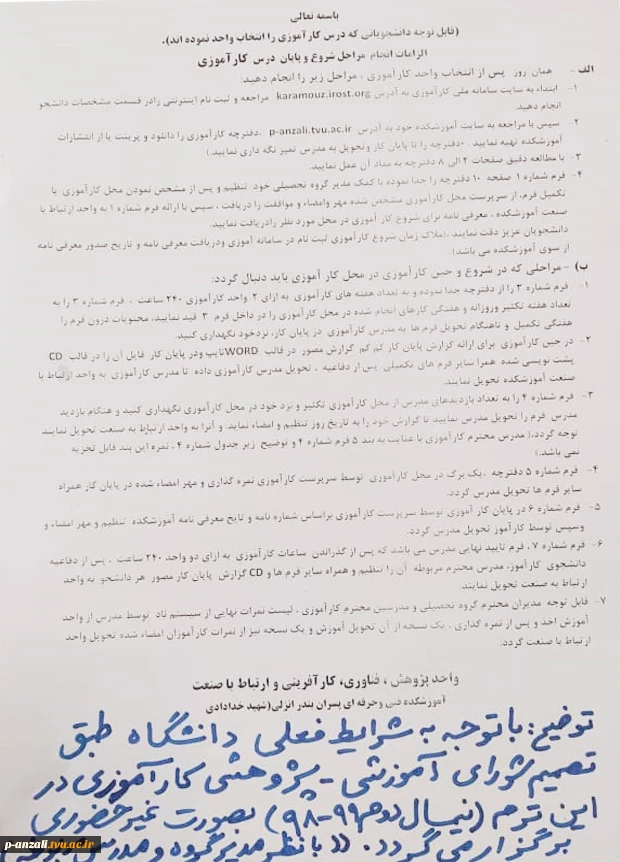 باسمه تعالی
(قابل توجه دانشجویانی که درس کارآموزی را انتخاب واحد نموده اند).
الزامات انجام مراحل شروع و پایان درس کارآموزی
الف - همان روز پس از انتخاب واحد کارآموزی ، مراحل زیر را انجام دهید:
۱- ابتداء به سایت سامانه ملی کارآموزی به آدرس karamouz.irost.org مراجعه و ثبت نام اینترنتی رادر قسمت مشخصات دانشجو
انجام دهید.
۲- سپس با مراجعه به سایت آموزشکده خود به آدرس p-anzali.tvu.ac.ir ،دفترچه کارآموزی را دانلود و پرینت یا از انتشارات
آموزشکده تهیه نمایید . •دفترچه را تا پایان کار وتحویل به مدرس تمیز نگه داری نمایید.)
۳- با مطالعه دقیق صفحات ۲ الی ۸ دفترچه به مفاد آن عمل نمایید.
۴- فرم شماره ۱ صفحه ۱۰ دفترچه را جدا نموده با کمک مدیر گروه تحصیلی خود تنظیم و پس از مشخص نمودن محل کارآموزی با
تکمیل فرم، از سرپرست محل کارآموزی مشخص شده مهر وامضاء و موافقت را دریافت ، سپس با ارائه فرم شماره ۱ به واحد ارتباط با
صنعت آموزشکده ، معرفی نامه برای شروع کار آموزی در محل مورد نظر رادریافت نمایید.
دانشجویان عزیز دقت نمایند ،(ملاک زمان شروع کارآموزی ثبت نام در سامانه آموزی ودریافت معرفی نامه و تاریخ صدور معرفی نامه
از سوی آموزشکده می باشد.)
ب) - مراحلی که در شروع و حین کارآموزی در محل کار آموزی باید دنبال گردد:
۱- فرم شماره ۳ را از دفترچه جدا نموده و به تعداد هفته های کارآموزی به ازای ۲ واحد کارآموزی ۲۴۰ ساعت ، فرم شماره ۳ را به
تعداد هفته تکثیر وروزانه و هفتگی کارهای انجام شده در محل کارآموزی را در داخل فرم ۳ قید نمایید، محتویات درون فرم را
هفتگی تکمیل و تاهنگام تحویل فرم ها به مدرس کارآموزی در پایان کار، نزدخود نگهداری کنید.
۲- در حین کارآموزی برای ارائه گزارش پایان کار کم کم گزارش مصور در قالب WORDتایپ ودر پایان کار فایل آن را در قالب CD
پشت نویسی شده همرا سایر فرم های تکمیلی پس از دفاعیه ، تحویل مدرس کارآموزی داده تا مدرس کارآموزی به واحد ارتباط با
صنعت آموزشکده تحویل نمایند.
۳- فرم شماره ۴ را به تعداد بازدیدهای مدرس از محل کارآموزی تکثیر و نزد خود در محل کارآموزی نگهداری کنید و هنگام بازدید
مدرس فرم را تحویل مدرس نمایید تا گزارش خود را به تاریخ روز تنظیم و امضاء نماید. و آنرا به واحد ارتباط به صنعت تحویل نمایند
توجه گردد،( مدرس محترم کارآموزی با عنایت به بند ۵ فرم شماره ۴ و توضیح زیر جدول شماره ۴ ، نمره این بند قابل تجزیه
نمی باشد.)
۴- فرم شماره ۵ دفترچه ،یک برگ در محل کارآموزی توسط سرپرست کارآموزی نمره گذاری و مهر امضاء شده در پایان کار همراه
سایر فرم ها تحویل مدرس گردد.
۵- فرم شماره ۶ در پایان کار آموزی توسط سرپرست کارآموزی براساس شماره نامه و تایخ معرفی نامه آموزشکده تنظیم و مهر امضاء و
وسپس توسط کارآموز تحویل مدرس گردد.
۶- فرم شماره ۷ ، فرم تایید نهایی مدرس می باشد که پس از گذراندن ساعات کارآموزی به ازای دو واحد ۲۴۰ ساعت ، پس از دفاعیه
دانشجوی کارآموز، مدرس محترم مربوطه آن را تنظیم و همراه سایر فرم ها و CD گزارش پایان کار مصور هر دانشجو به واحد
ارتباط به صنعت تحویل نمایند.
۷- قابل توجه مدیران محترم گروه تحصیلی و مدرسین محترم کارآموزی ، لیست نمرات نهایی از سیستم ناد توسط مدرس از واحد
آموزش اخذ و پس از نمره گذاری ، یک نسخه از آن تحویل آموزش و یک نسخه نیز از نمرات کارآموزان امضاء شده تحویل واحد
ارتباط با صنعت گردد.
واحد پژوهش ، فناوری، کارآفرینی و ارتباط با صنعت
آموزشکده فنی وحرفه ای پسران بندر انزلی(شهید خدادادی)
توضیح: با توجه به شرایط فعلی دانشگاه طبق
تصمیم شورای آموزشی - پژوهشی کارآموزی در
این ترم (نیمسال دوم ۹۹-۹۸) بصورت غیرحضوری
برگزار می گردد. (( با نظر مدیر گروه و مدرس
p-anzali.tvu.ac.ir